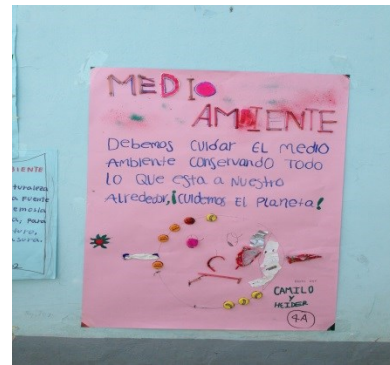 MEDIO
AMIENTE
Debemos cuidar EL medio
Ambiente conservando Todo
lo Que esta a Nuestro
Alrededor, ¡cuidemos El Planeta!
CAMILO
Y
HEIDER
4A
BIENTE